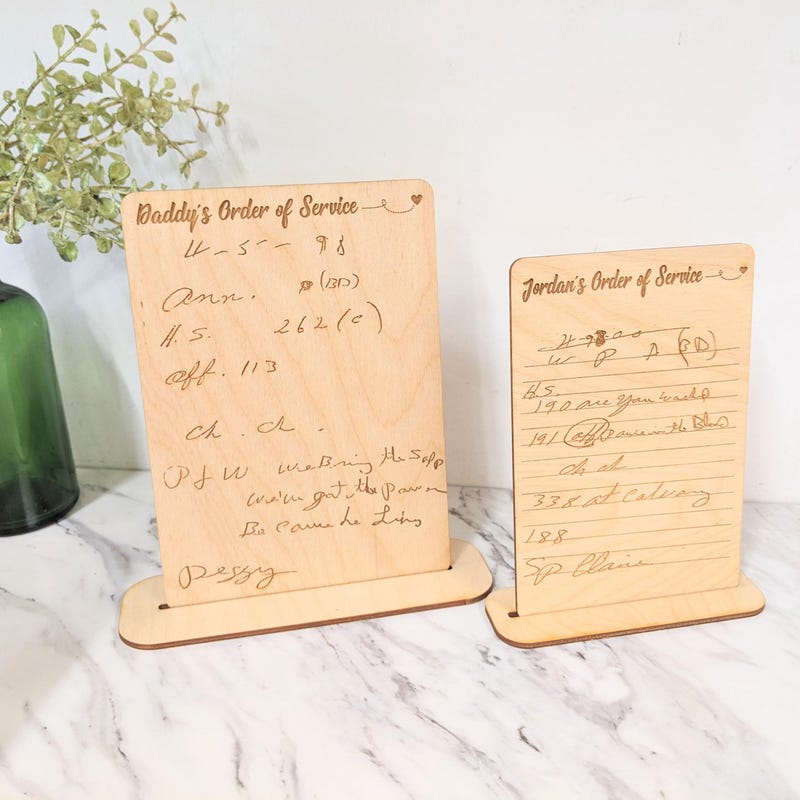 Daddy's Order of Service
H - S - 98
Ann. (BD)
H.S. 262 (C)
Off. 113
Ch. Ch.
P & W We Bring the
We've got the Power
Because he Lives
Peggy
Jordan's Order of Service
W P A (BD)
H.S.
190 Are you washed
191 Off Power in the Blood
Ch Ch
338 at Calvary
188
Sp Claire